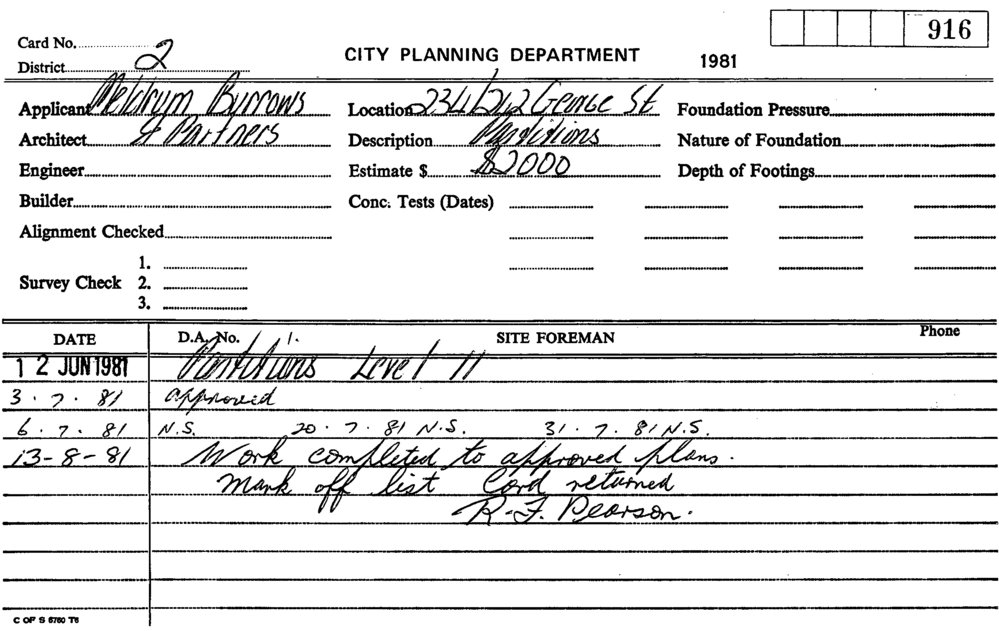 916
Card No.
District 2
CITY PLANNING DEPARTMENT 1981
Applicant Meldrum Burrows Location 234/242 George St Foundation Pressure
Architect & Partners Description Partitions Nature of Foundation
Engineer Estimate $ $2000 Depth of Footings
Builder Conc. Tests (Dates)
Alignment Checked
1.
Survey Check 2.
3.
DATE D.A. No. SITE FOREMAN Phone
12 JUN 1981 Partitions Level 11
3 . 7 . 81 approved
6 . 7 . 81 N.S. 20 . 7 . 81 N.S. 31 . 7 . 81 N.S.
13-8-81 Work completed to approved plans.
Mark off list Card returned
R.F. Pearson.
C OF S 6760 T6